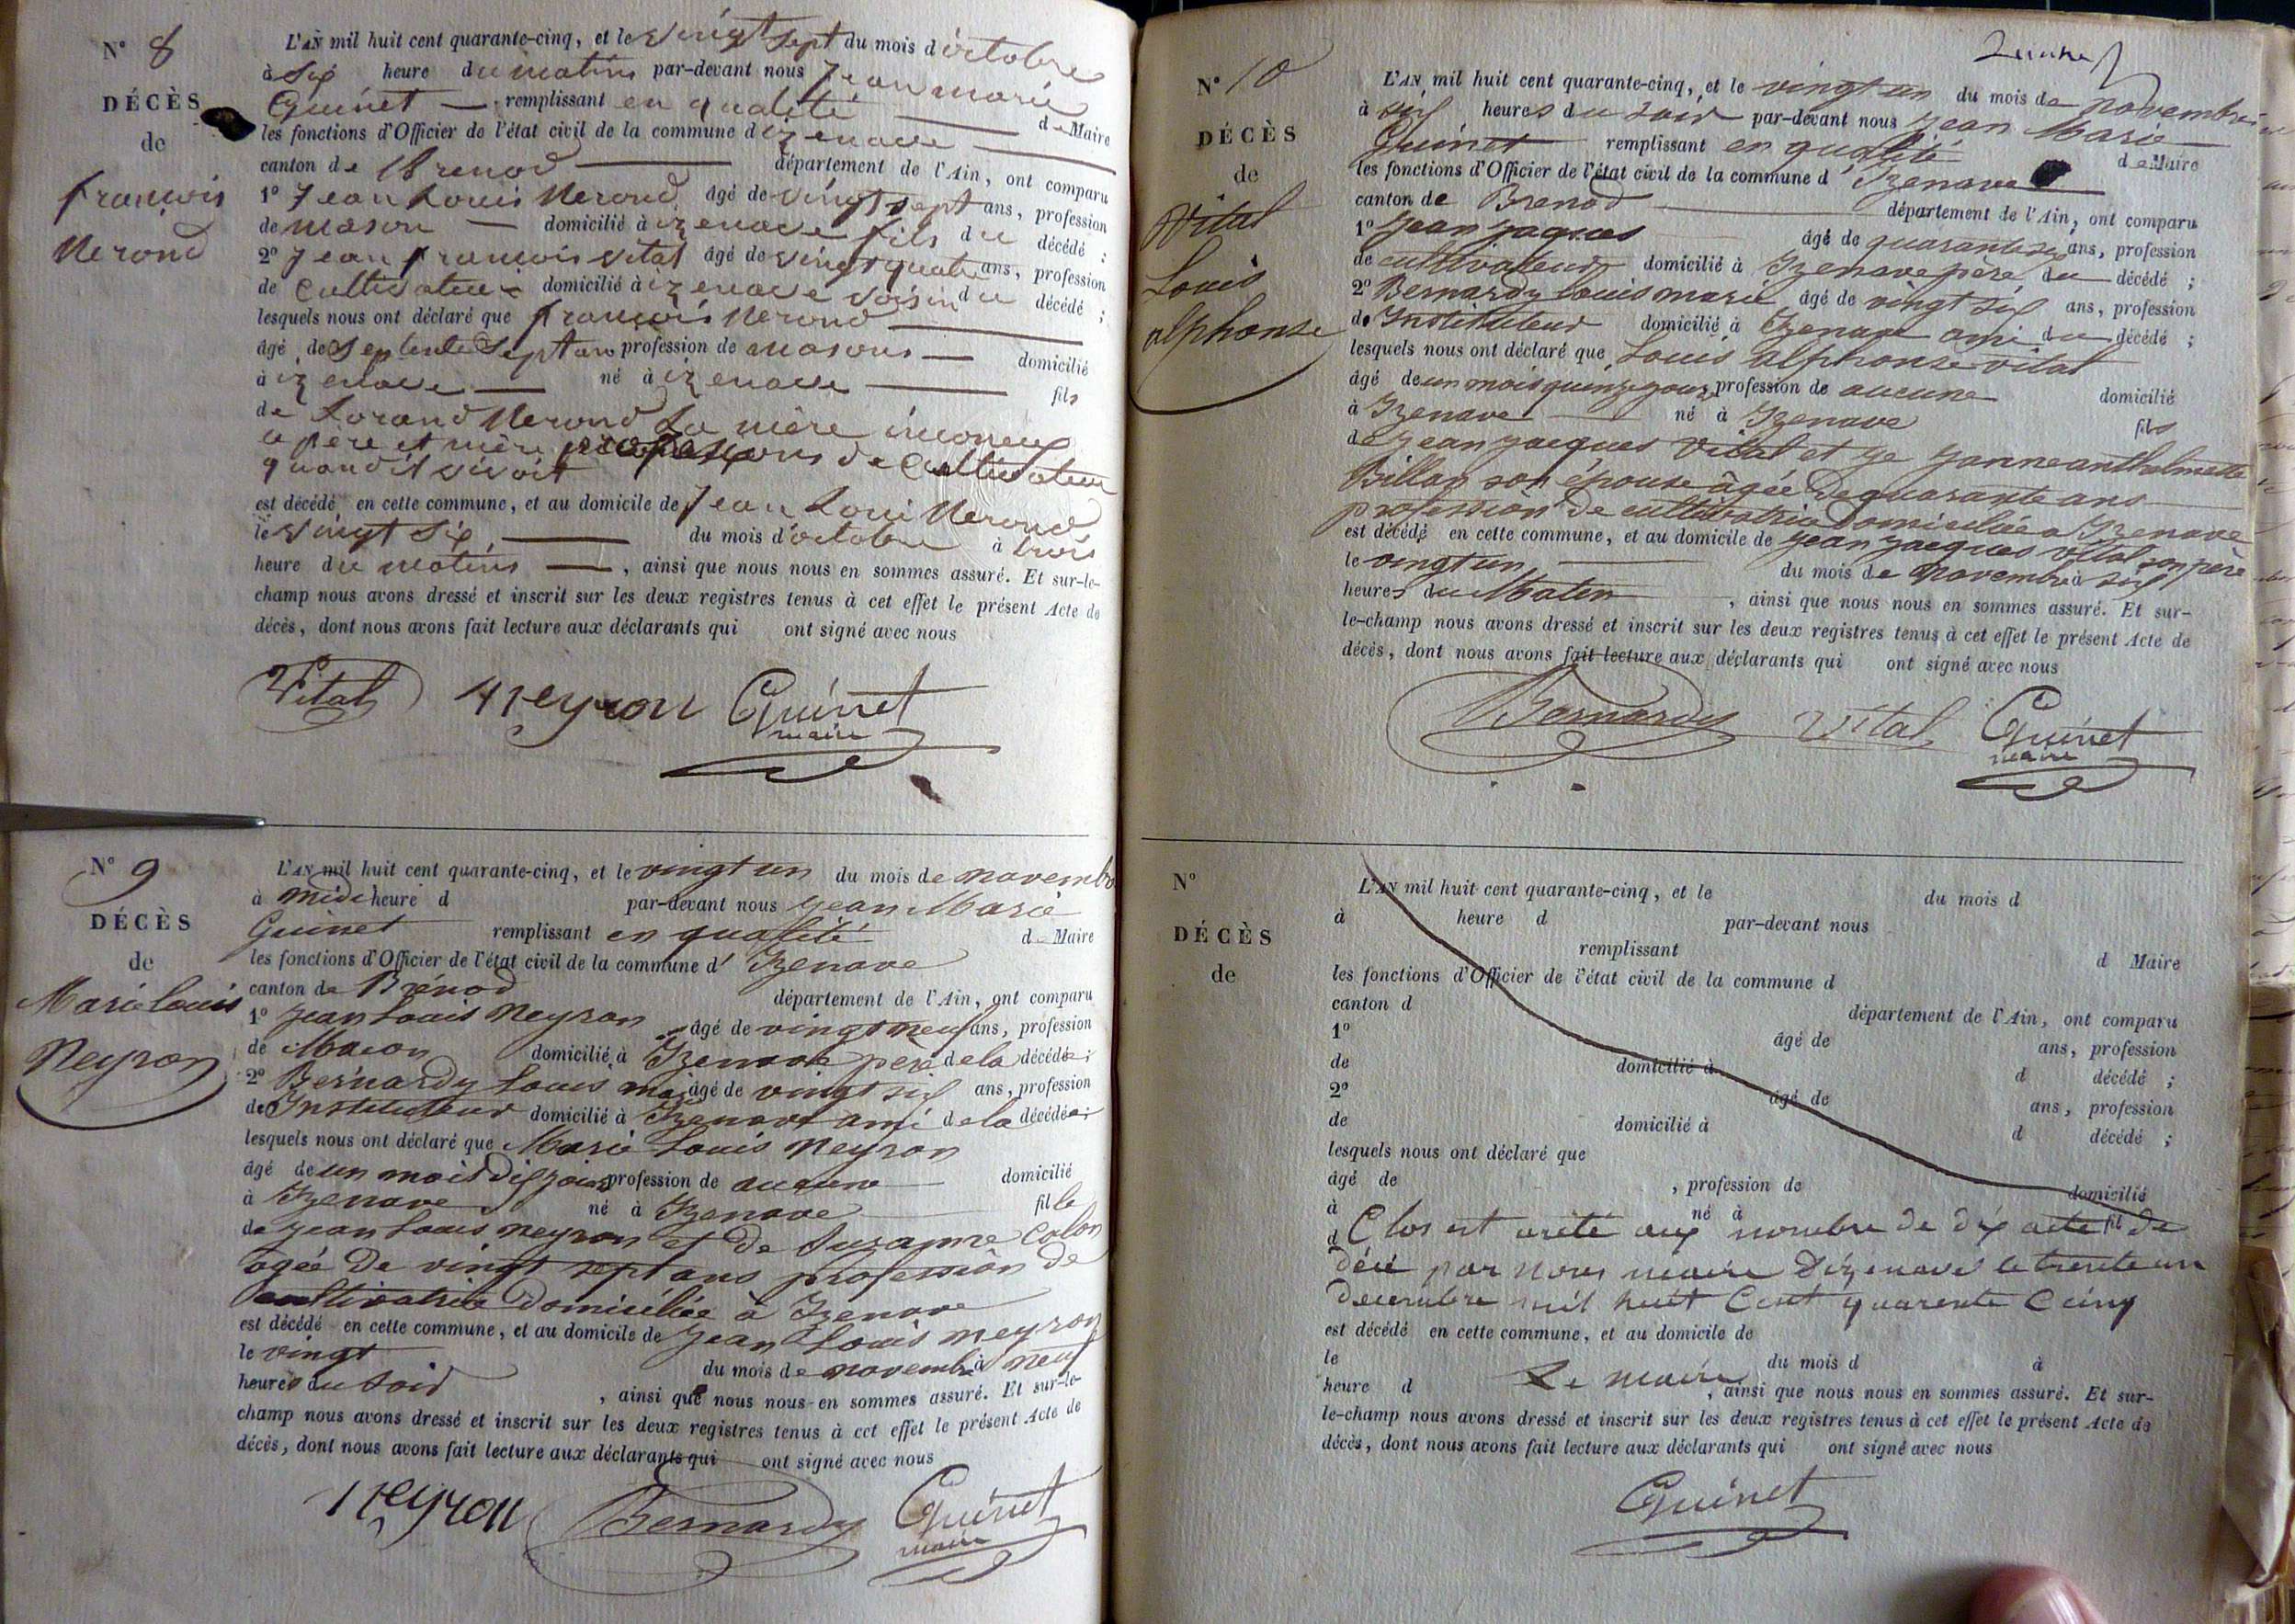 N° 8
DÉCÈS
de
françois
Nerond
L'AN mil huit cent quarante-cinq, et le vingt sept du mois d'octobre
à six heure du matin par-devant nous Jean marie
Guinet remplissant en qualité de Maire
les fonctions d'Officier de l'état civil de la commune d'izenave
canton de Brenod département de l'Ain, ont comparu
1° Jean Louis Nerond âgé de vingt sept ans, profession
de mason domicilié à izenave fils du décédé ;
2° Jean françois vital âgé de vingt quatre ans, profession
de Cultivateur domicilié à izenave voisin du décédé ;
lesquels nous ont déclaré que françois Nerond
âgé de septente sept ans profession de masons domicilié
à izenave né à izenave fils
de Lorand Nerond La mère inconeux
père et mère de Cultivateur
quandit vivoit
est décédé en cette commune, et au domicile de Jean Loui Nerond
le vingt six du mois d'octobre à trois
heure du matins , ainsi que nous nous en sommes assuré. Et sur-le-
champ nous avons dressé et inscrit sur les deux registres tenus à cet effet le présent Acte de
décès, dont nous avons fait lecture aux déclarants qui ont signé avec nous
Vital Neyron Guinet
maire
N° 9
DÉCÈS
de
Marie louis
Neyron
L'AN mil huit cent quarante-cinq, et le vingt un du mois de novembre
à midi heure d par-devant nous Jean Marie
Guinet remplissant en qualité d Maire
les fonctions d'Officier de l'état civil de la commune d' Izenave
canton de Brénod département de l'Ain, ont comparu
1° Jean Louis Neyron âgé de vingt neuf ans, profession
de Macon domicilié à Izenave père de la décédée ;
2° Bernardy Louis marie âgé de vingt six ans, profession
de Instituteur domicilié à Izenave ami de la décédée ;
lesquels nous ont déclaré que Marie Louis Neyron
âgé de un mois dix jours profession de aucune domicilié
à Izenave né à Izenave fille
de Jean Louis Neyron et de Suzanne Colon
agée de vingt sept ans profession de
cultivatrice domiciliée à Izenave
est décédé en cette commune, et au domicile de Jean Louis neyron
le vingt du mois de novembre à neuf
heures du soir , ainsi que nous nous en sommes assuré. Et sur-le-
champ nous avons dressé et inscrit sur les deux registres tenus à cet effet le présent Acte de
décès, dont nous avons fait lecture aux déclarants qui ont signé avec nous
Neyron Bernardy Guinet
maire
N° 10
DÉCÈS
de
Vital
Louis
alphonse
L'AN mil huit cent quarante-cinq, et le vingt un du mois de novembre
à six heures du soir par-devant nous Jean Marie
Guinet remplissant en qualité de Maire
les fonctions d'Officier de l'état civil de la commune d' Izenave
canton de Brenod département de l'Ain, ont comparu
1° Jean Jaques âgé de quarante six ans, profession
de cultivateur domicilié à Izenave père du décédé ;
2° Bernardy Louis marie âgé de vingt six ans, profession
de Instituteur domicilié à Izenave ami du décédé ;
lesquels nous ont déclaré que Louis alphonse vital
âgé de un mois quinze jours profession de aucune domicilié
à Izenave né à Izenave fils
de Jean Jacques Vital et de Janne anthelmette
Billon son épouse âgée de quarante ans
profession de cultivatrice domiciliée a Izenave
est décédé en cette commune, et au domicile de Jean Jacques vital son père
le vingt un du mois de novembre à six
heures du Matin , ainsi que nous nous en sommes assuré. Et sur-
le-champ nous avons dressé et inscrit sur les deux registres tenus à cet effet le présent Acte de
décès, dont nous avons fait lecture aux déclarants qui ont signé avec nous
Bernardy Vital Guinet
maire
N°
DÉCÈS
de
L'AN mil huit cent quarante-cinq, et le du mois d
à heure d par-devant nous
remplissant d Maire
les fonctions d'Officier de l'état civil de la commune d
canton d département de l'Ain, ont comparu
1° âgé de ans, profession
de domicilié à d décédé ;
2° âgé de ans, profession
de domicilié à d décédé ;
lesquels nous ont déclaré que
âgé de , profession de domicilié
à né à fil
d Clos est areté aux nombre de dix acte de
décé par nous maire d'izenave le trente un
decembre mil huit Cent quarente Cainq
est décédé en cette commune, et au domicile de
le du mois d à
Le maire
heure d , ainsi que nous nous en sommes assuré. Et sur-
le-champ nous avons dressé et inscrit sur les deux registres tenus à cet effet le présent Acte de
décès, dont nous avons fait lecture aux déclarants qui ont signé avec nous
Guinet